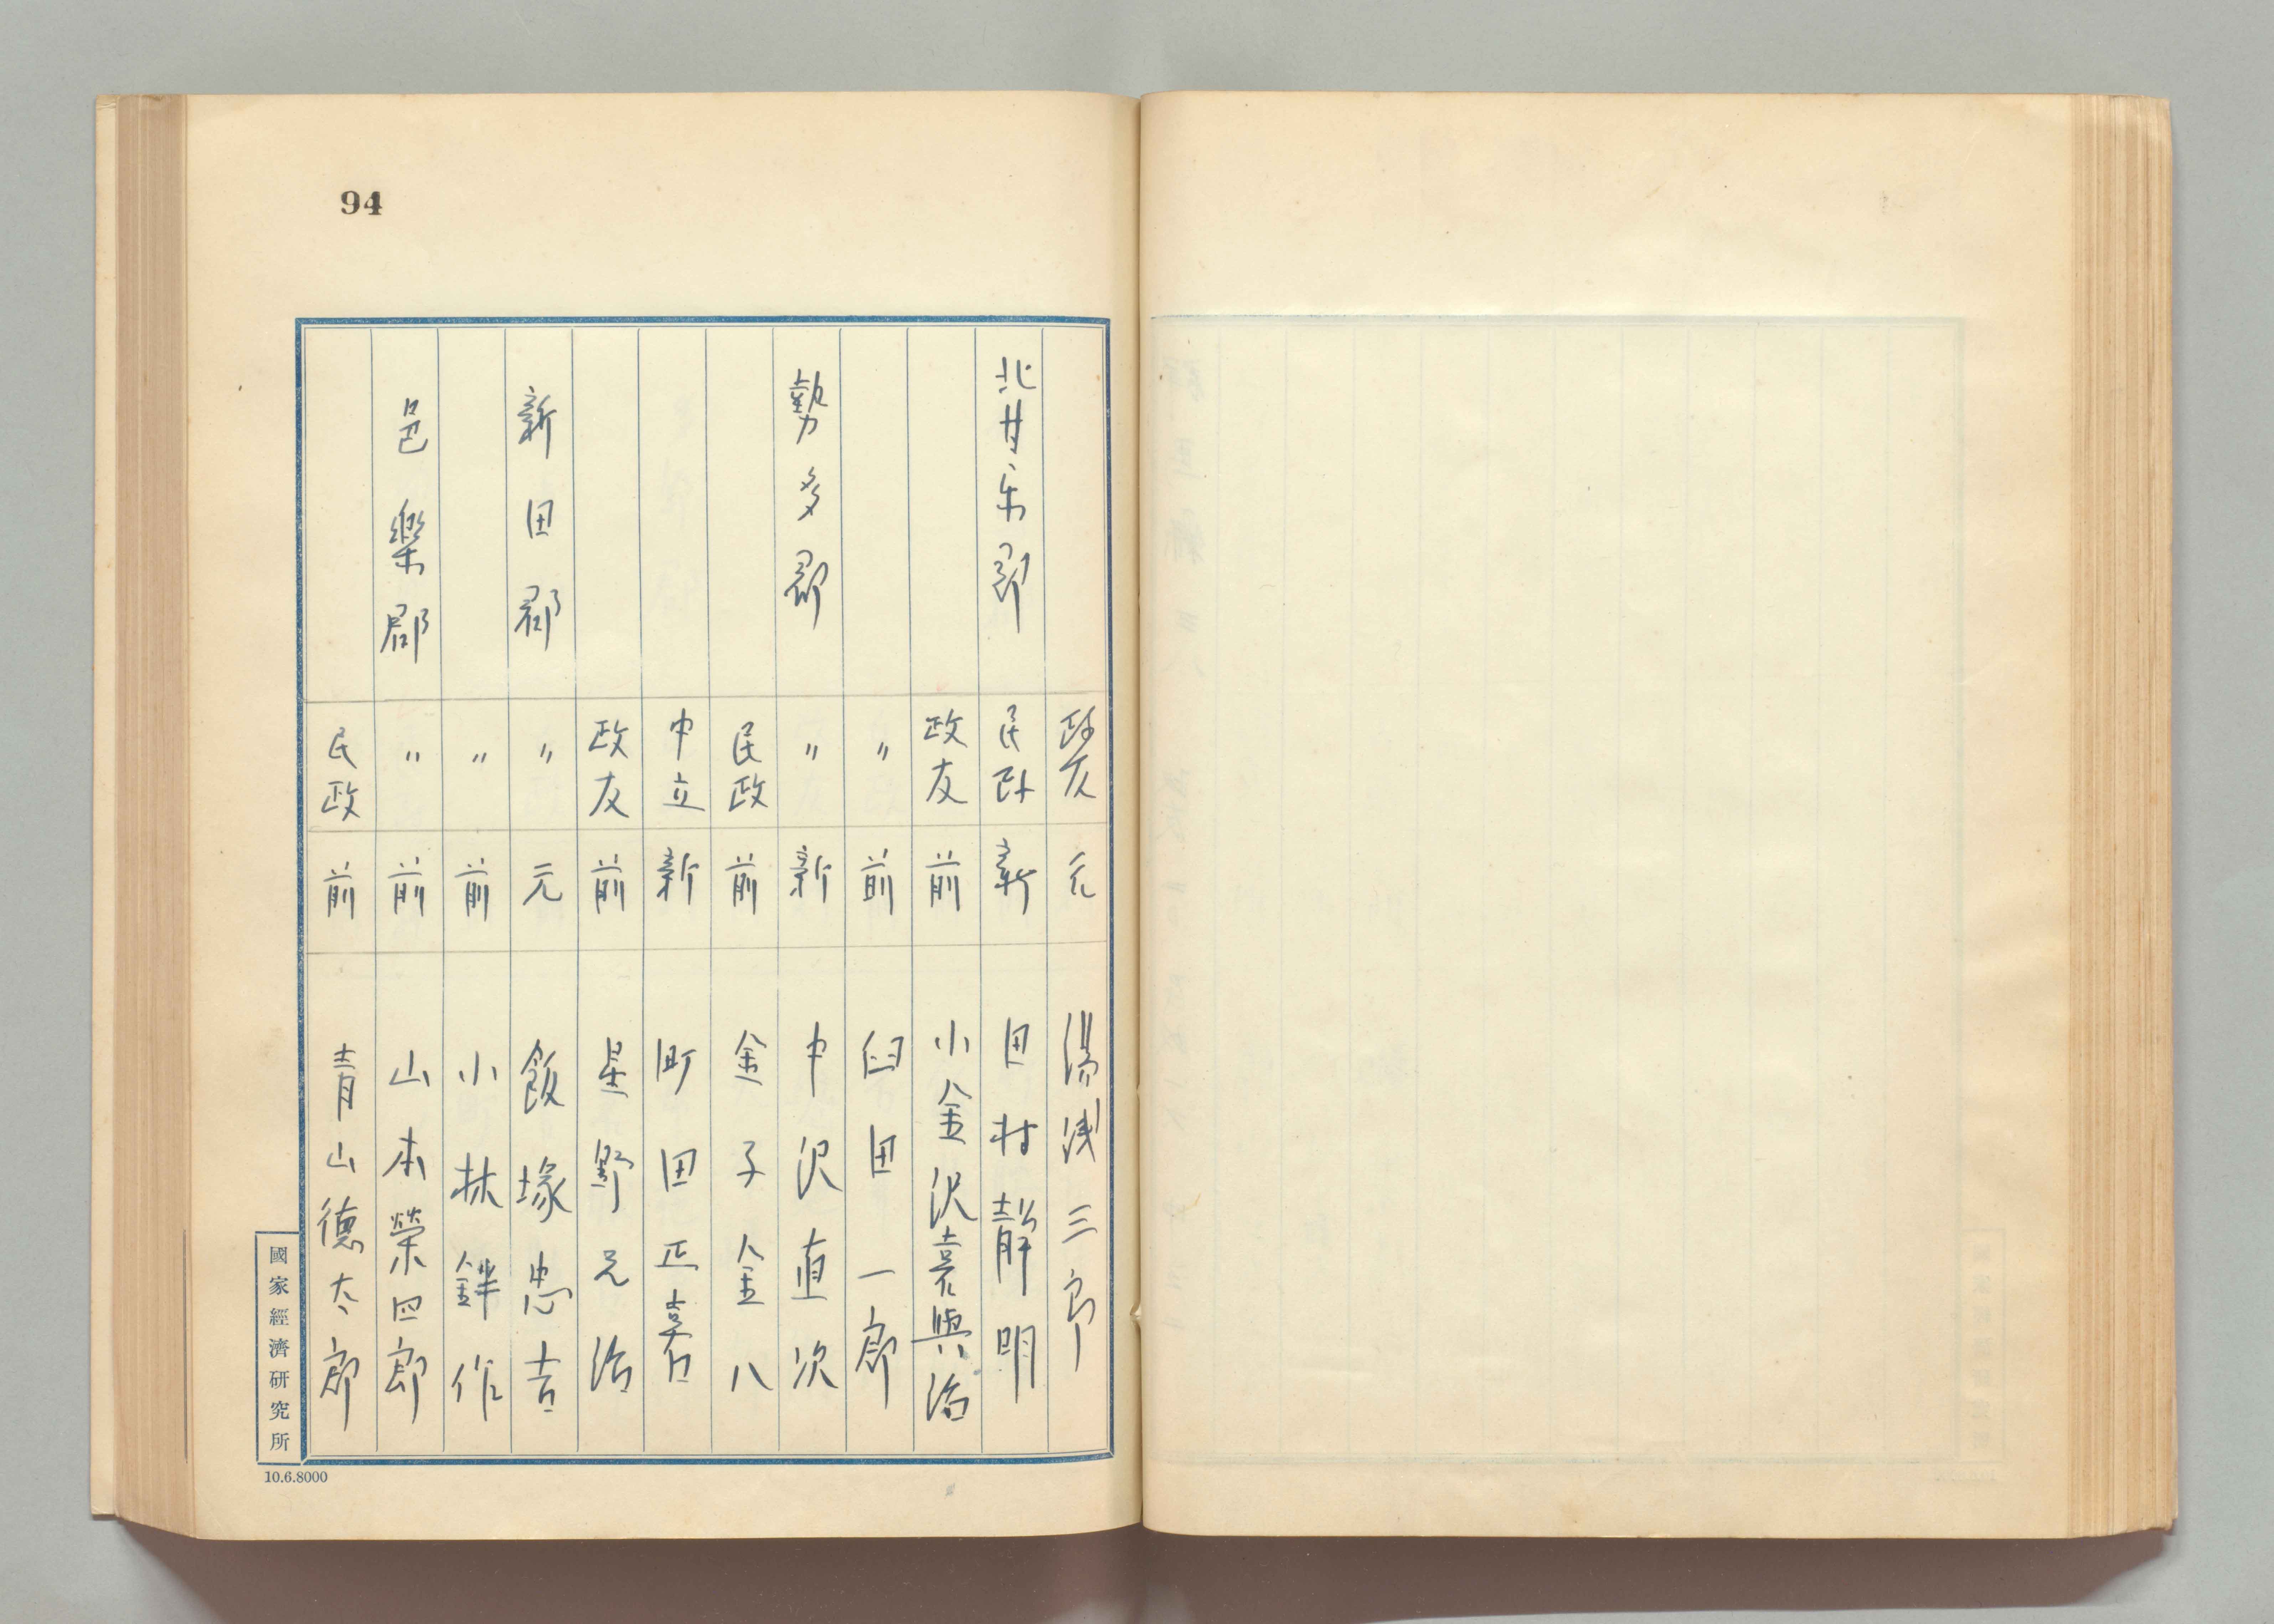 94
政友 元 湯浅三郎
北甘乐郡 民政 新 田村靜明
政友 前 小金沢嘉與治
〃 前 臼田一郎
勢多郡 〃 新 中沢直次
民政 前 金子金八
中立 新 町田正嘉
政友 前 星野元治
新田郡 〃 元 飯塚忠吉
〃 前 小林鉡作
邑樂郡 〃 前 山本榮四郎
民政 前 青山德太郎
國家經濟研究所
10.6.8000